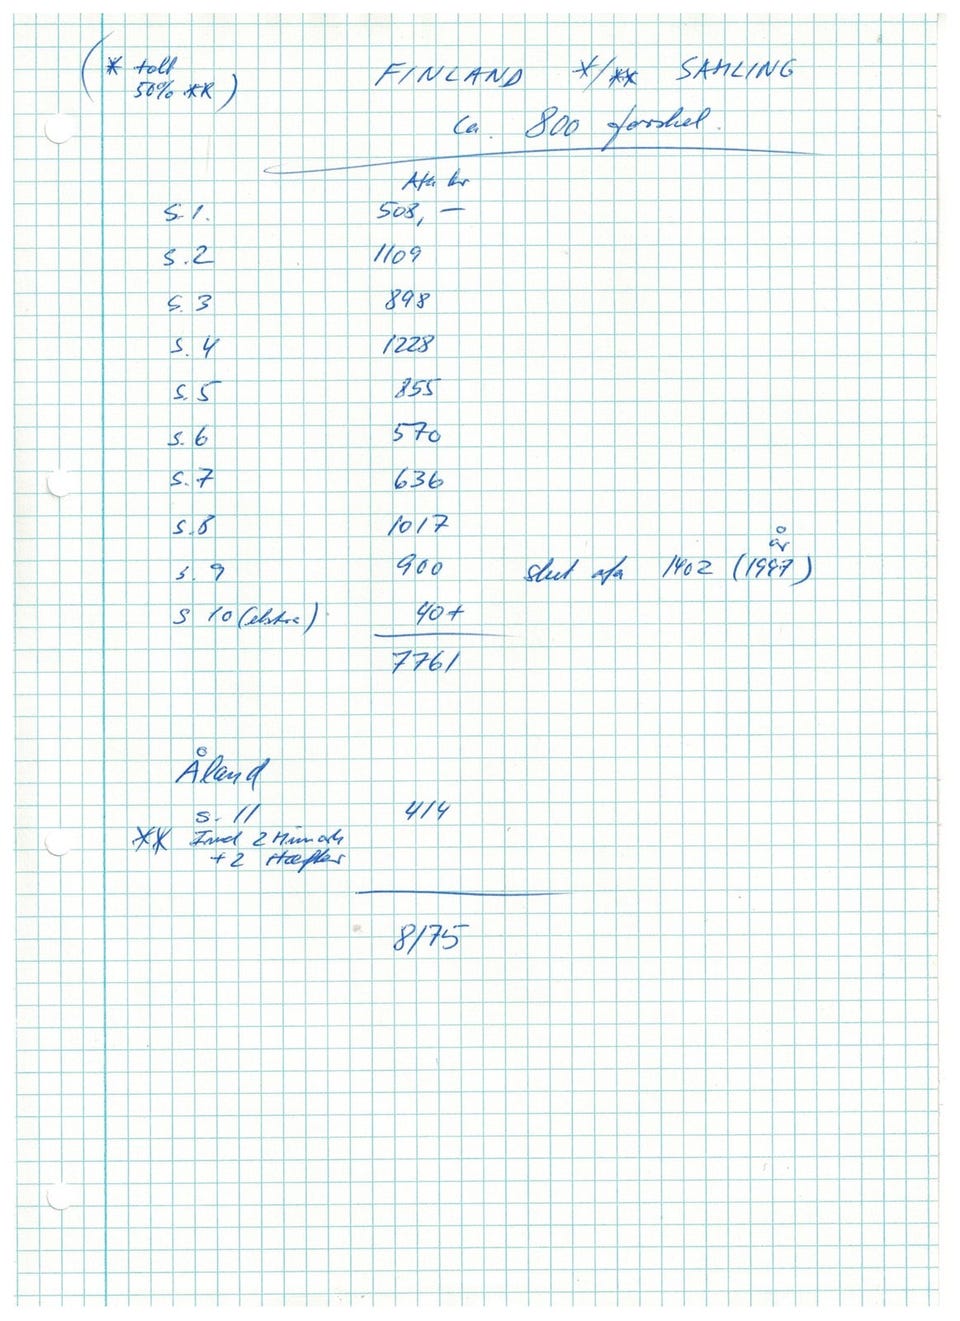 (* talt
50% **R)
FINLAND */** SAMLING
Ca. 800 forskel.
Afa kr
S.1. 508,—
S.2 1109
S.3 898
S.4 1228
S.5 855
S.6 570
S.7 636
S.8 1017
S.9 900 slut afa 1402 (år 1997)
S 10 (ekstra) 40+
7761
Åland
S.11 414
** Incl 2 Miniark
+2 Hæfter
8175